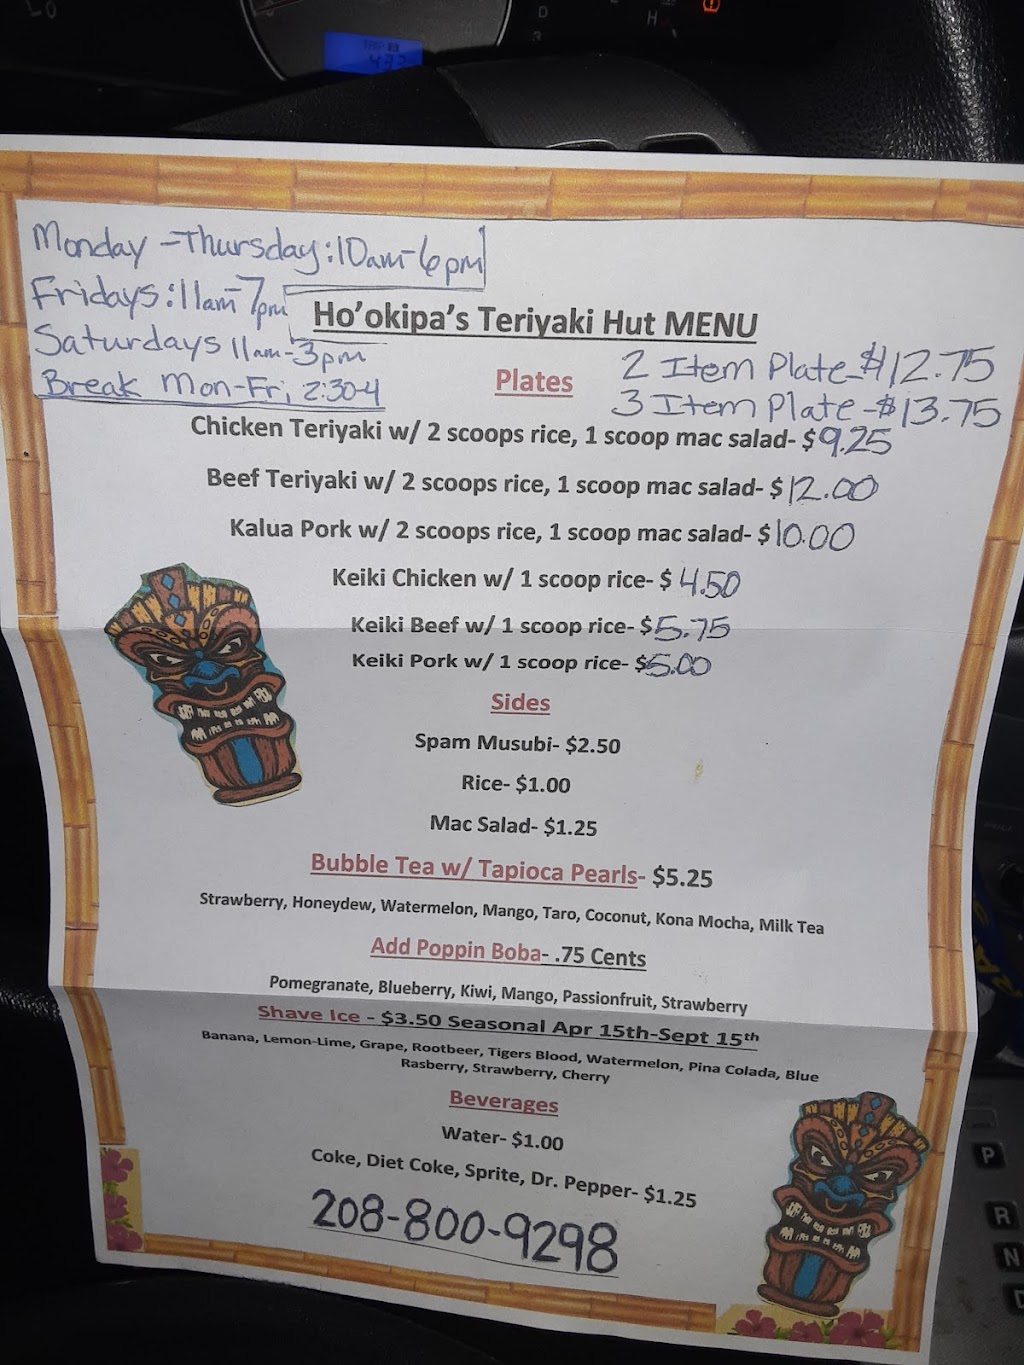 TRIP B
Monday - Thursday: 10am-6pm
Fridays: 11am-7pm
Saturdays 11am-3pm
Break Mon-Fri, 2:30-4
Ho'okipa's Teriyaki Hut MENU
2 Item Plate-$12.75
3 Item Plate-$13.75
Plates
Chicken Teriyaki w/ 2 scoops rice, 1 scoop mac salad- $9.25
Beef Teriyaki w/ 2 scoops rice, 1 scoop mac salad- $12.00
Kalua Pork w/ 2 scoops rice, 1 scoop mac salad- $10.00
Keiki Chicken w/ 1 scoop rice- $4.50
Keiki Beef w/ 1 scoop rice- $5.75
Keiki Pork w/ 1 scoop rice- $5.00
Sides
Spam Musubi- $2.50
Rice- $1.00
Mac Salad- $1.25
Bubble Tea w/ Tapioca Pearls- $5.25
Strawberry, Honeydew, Watermelon, Mango, Taro, Coconut, Kona Mocha, Milk Tea
Add Poppin Boba- .75 Cents
Pomegranate, Blueberry, Kiwi, Mango, Passionfruit, Strawberry
Shave Ice - $3.50 Seasonal Apr 15th-Sept 15th
Banana, Lemon-Lime, Grape, Rootbeer, Tigers Blood, Watermelon, Pina Colada, Blue
Rasberry, Strawberry, Cherry
Beverages
Water- $1.00
Coke, Diet Coke, Sprite, Dr. Pepper- $1.25
208-800-9298
P
R
N
D